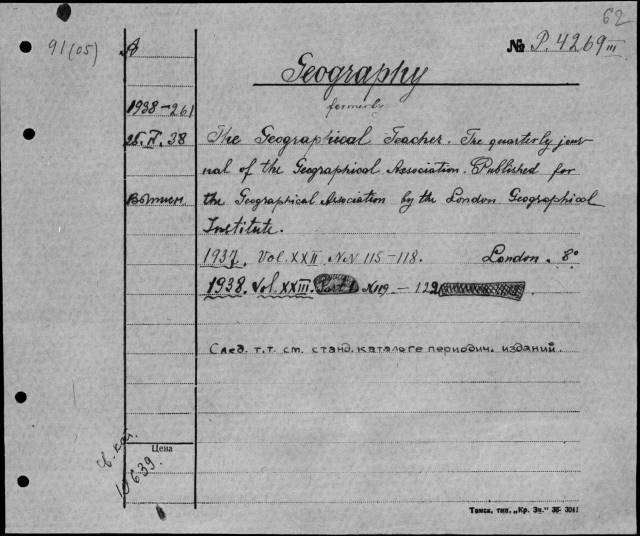 62
91(05)
№ P. 4269 III
Geography
formerly
1938-261
25.IV.38 The Geographical Teacher. The quarterly jour-
nal of the Geographical Association. Published for
the Geographical Association by the London Geographical
Institute.
1937. Vol. XXII. NN 115-118. London. 8°
1938. Vol. XXIII. Part 1 N 119. - 122
След. т.т. см. станд. каталоге периодич. изданий.
Цена
кат.
10639.
Томск, тип. „Кр. Зн.“ 36-3041